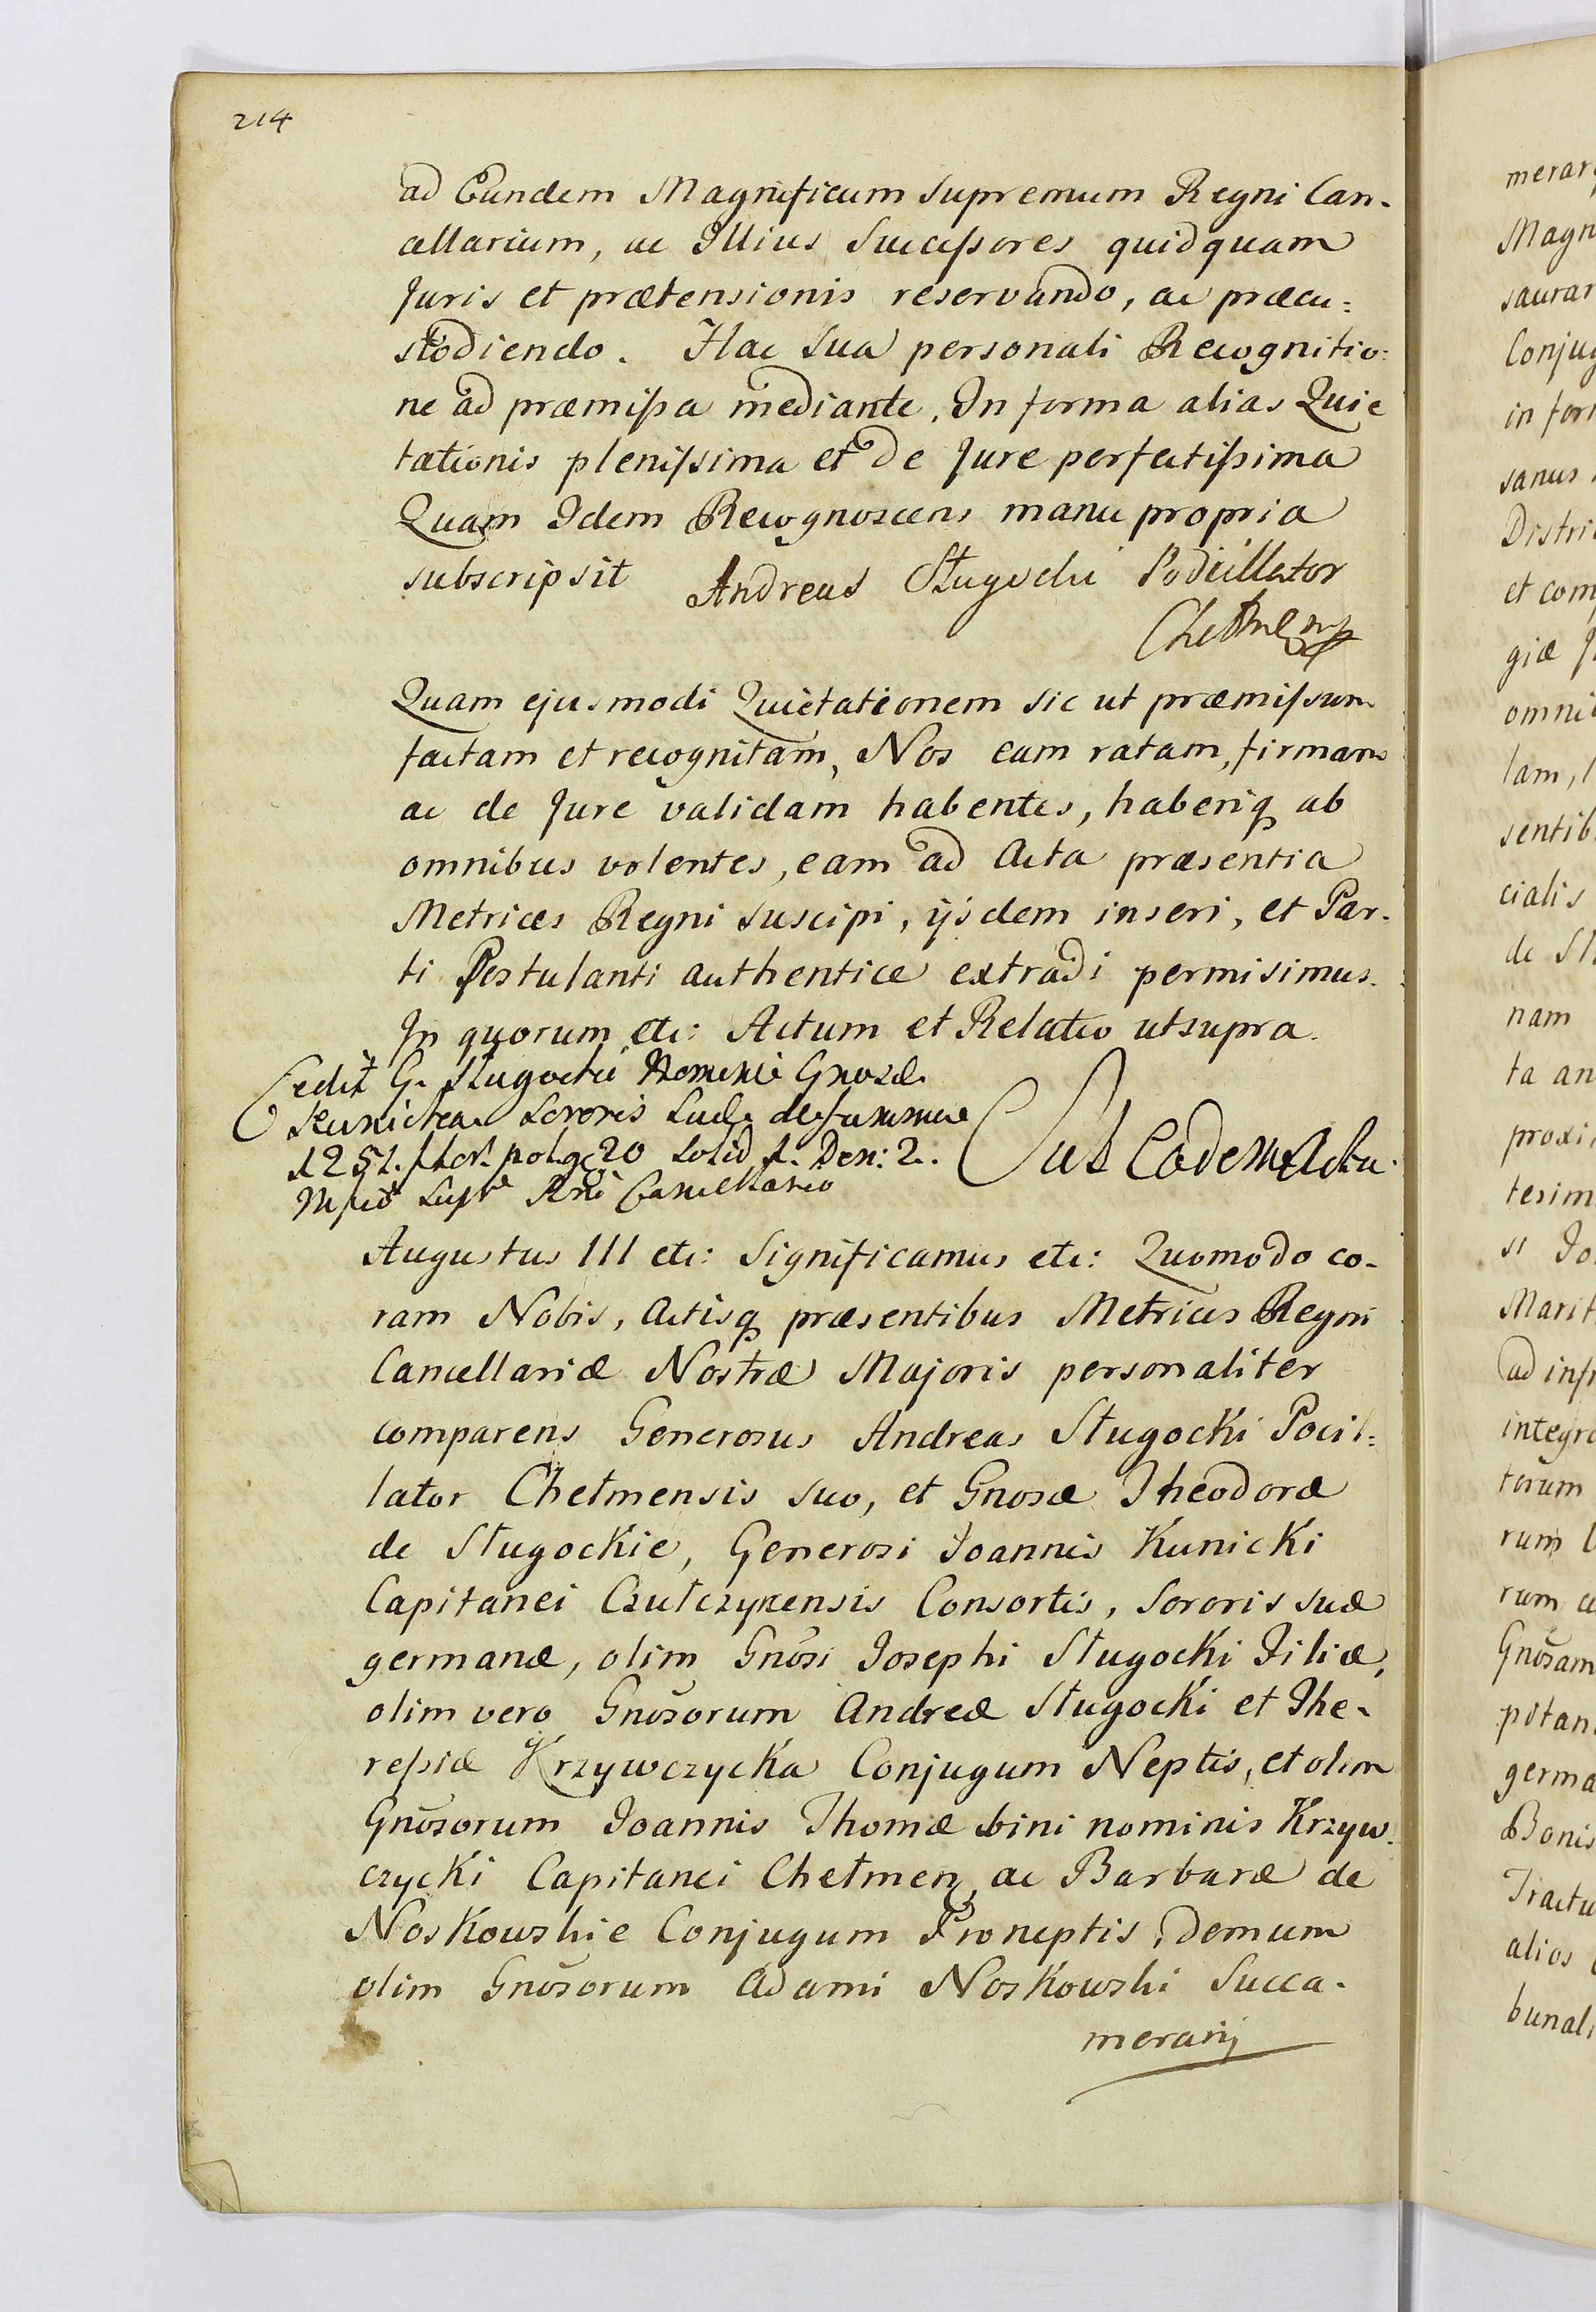 214
ad Eundem Magnificum Supremum Regni Can-
cellarium, ac Illius Succeſsores quidquam
Juris et prætensionis reservando, ac præcu:
stodiendo. Hac Sua personali Recognitio:
ne ad præmiſsa mediante, In forma alias Quie
tationis pleniſsima et de Jure perfectiſsima
Quam Idem Recognoscens manu propria
subscripsit Andreas Sługocki Pocillator
Chełmen mp
Quam ejusmodi Quietationem sic ut præmiſsum
factam et recognitam, Nos eam ratam, firmam
ac de Jure validam habentes, haberiq ab
omnibus volentes, eam ad Acta præsentia
Metrices Regni suscipi, ijsdem inseri, et Par-
ti Postulanti authentice extradi permisimus.
In quorum etc: Actum et Relatio ut supra.
Cedit G. Sługocki Nomine Gnosæ
Kunickea Sororis Suæ de summa
1251. flor. pol. g 20 Solid 1. Den: 2.
Mfico Supr Rni Cancellario
Sub Eodem Actu.
Augustus III etc: Significamus etc: Quomodo co-
ram Nobis, Actisq præsentibus Metrices Regni
Cancellariæ Nostræ Majoris personaliter
comparens Generosus Andreas Sługocki Pocil:
lator Chełmensis suo, et Gnosæ Theodoræ
de Sługockie, Generosi Joannis Kunicki
Capitanei Czułczycensis Consortis, Sororis suæ
germanæ, olim Gnosi Josephi Sługocki Filiæ,
olim vero Gnosorum Andreæ Sługocki et The-
reſsiæ Krzywczycka Conjugum Neptis, et olim
Gnosorum Joannis Thomæ bini nominis Krzyw-
czycki Capitanei Chełmen, ac Barbaræ de
Noskowskie Conjugum Proneptis, demum
olim Gnosorum Adami Noskowski Succa-
merarij
merar
Magn
saurar
Conjug
in for
sanus
Distri
et com
giæ
omni
lam,
sentib
cialis
de
nam
ta an
proxi
tesim
si Jo
Marit
ad infr
integr
torum
rum
rum
Gnosam
pitan
germa
Bonis
Tractu
alios
bunal